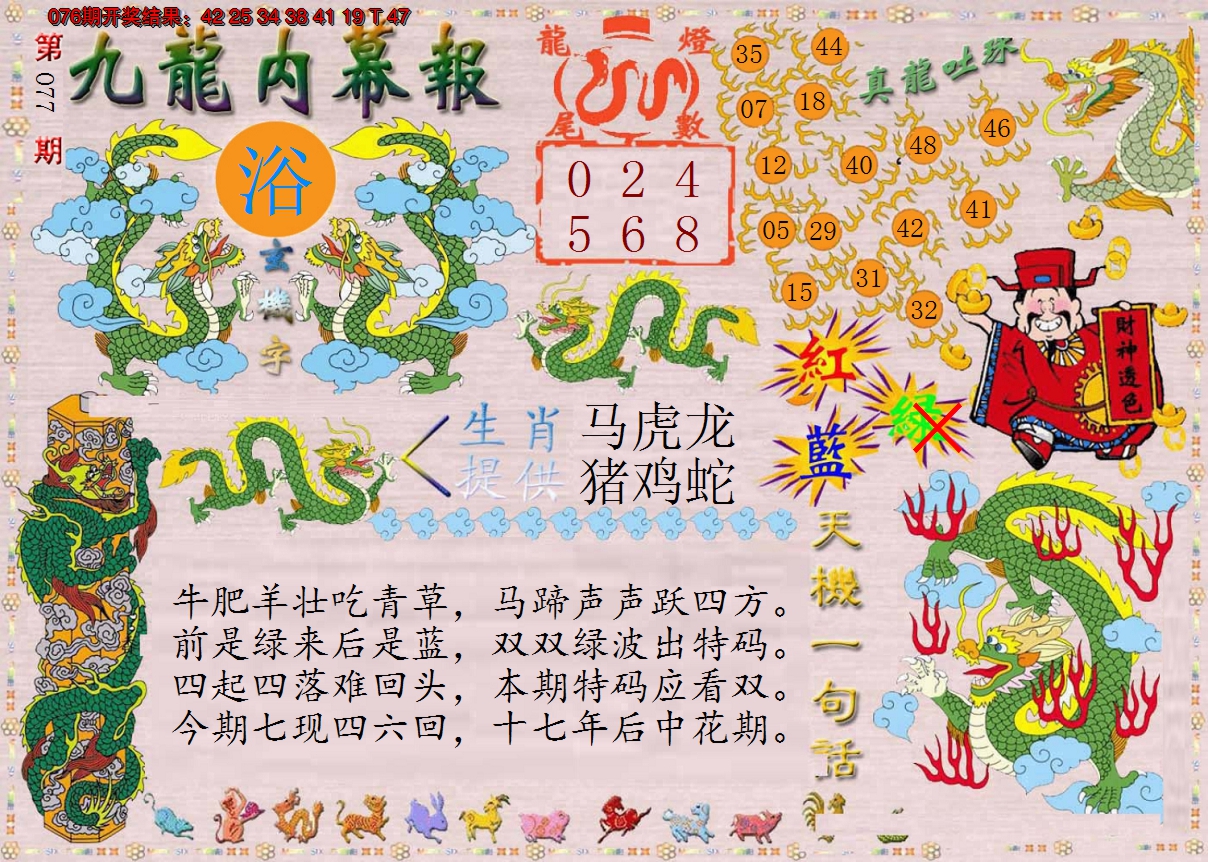 076期开奖结果：42 25 34 36 41 19 T 47
第077期
九龍内幕報
浴
玄機字
龍燈
尾數
0 2 4
5 6 8
真龍吐珠
35 44
07 18
12 40 48 46
05 29 42 41
15 31 32
財神透色
紅
绿
藍
生肖
提供
马虎龙
猪鸡蛇
天機一句话
牛肥羊壮吃青草，马蹄声声跃四方。
前是绿来后是蓝，双双绿波出特码。
四起四落难回头，本期特码应看双。
今期七现四六回，十七年后中花期。